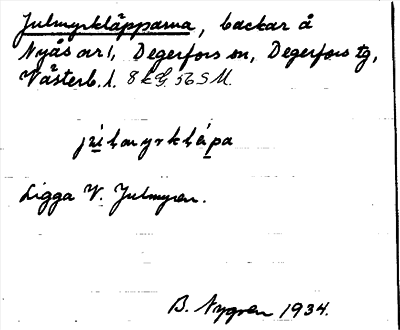 Julmyrkläpparna, backar å
Nyås ar!, Degerfors sn, Degerfors tg,
Västerb. l. 8kG. 56SM.
Ligga V. Julmyren.
B. Nygren 1934.